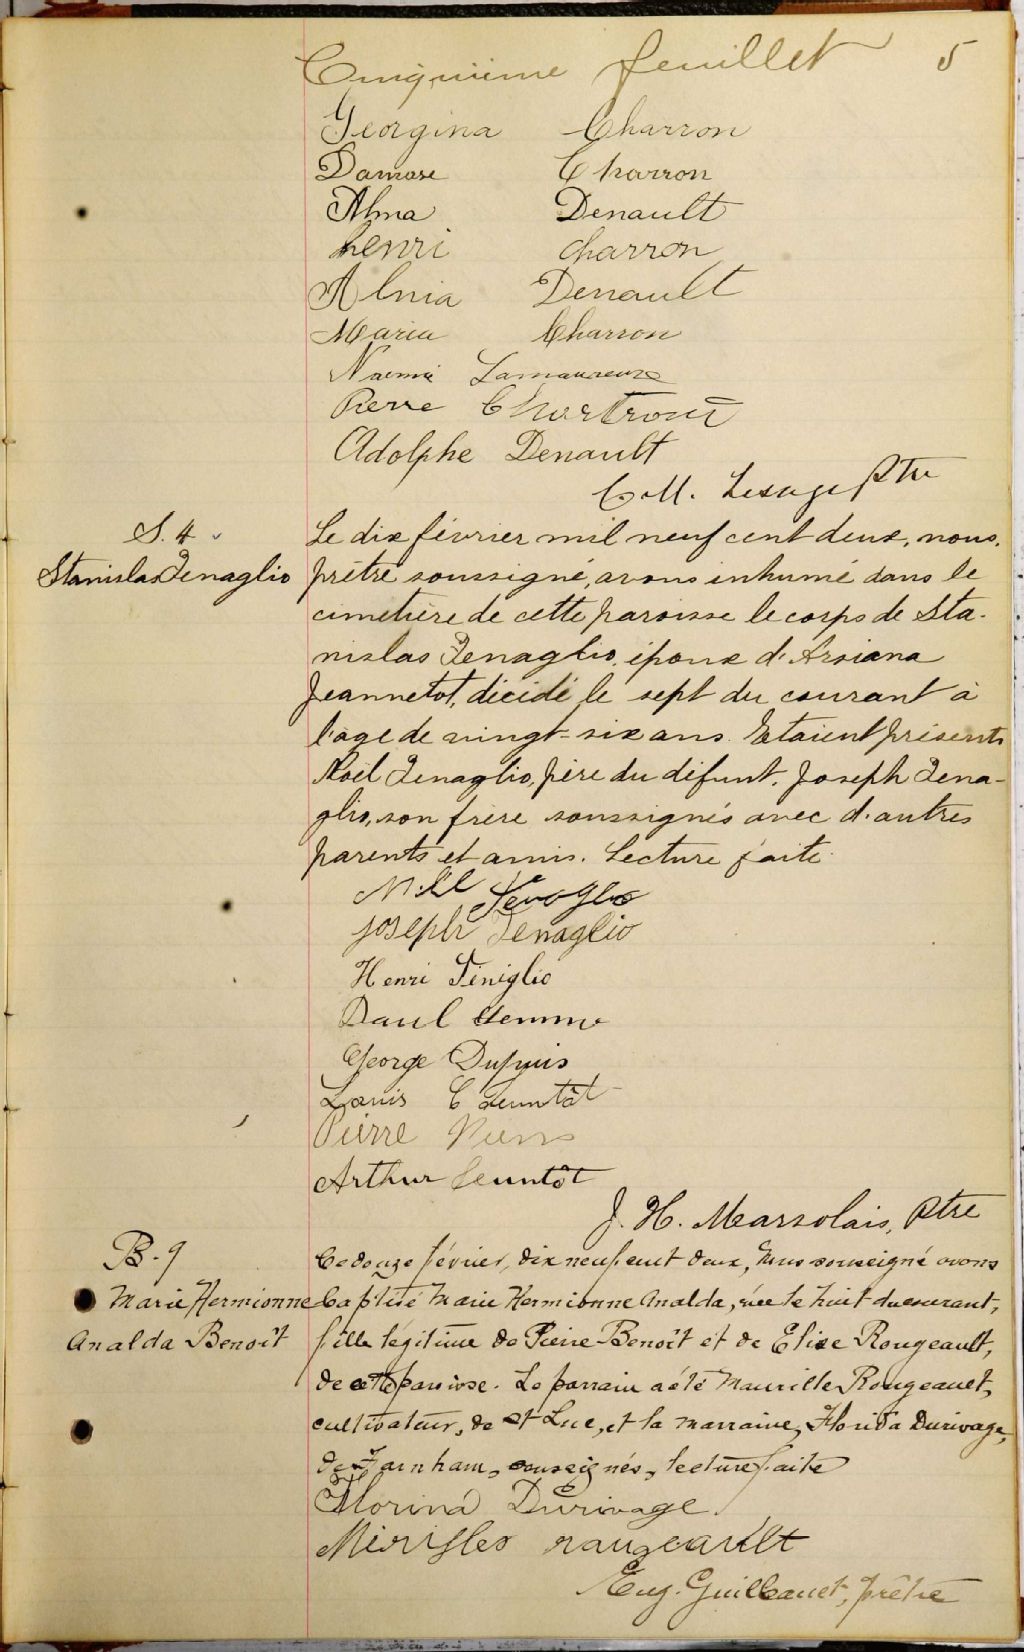 Cinquième feuillet 5
Georgina Charron
Damase Charron
Alma Denault
henri charron
Alnia Denault
Maria Charron
Naemi Lamoureux
Pierre Chartrant
Adolphe Denault
C. M. Lesage Ptre
S. 4
Stanislas Tenaglio
Le dix février mil neuf cent deux, nous,
prêtre soussigné, avons inhumé dans le
cimetière de cette paroisse le corps de Sta-
nislas Tenaglio, époux d'Arsiana
Jeannetot, décédé le sept du courant à
l'age de vingt-six ans. Etaient présents
Noël Tenaglio, père du défunt, Joseph Tena-
glio, son frère soussignés avec d'autres
parents et amis. Lecture faite.
Joseph Tenaglio
Henri Tiniglio
Paul
George Dupuis
Louis C
Pierre
Arthur
J. H. Marsolais, Ptre
B. 9
Marie Hermionne
Analda Benoit
Ce douze février, dix neuf cent deux, nous soussigné avons
baptisé Marie Hermionne Analda, née le huit du courant,
fille légitime de Pierre Benoît et de Elise Rougeault,
de cette paroisse. Le parrain a été Maurille Rougeault,
cultivateur, de St Luc, et la marraine, Florida Durivage,
de Farnham, soussignés, lecture faite
Florina Durivage
rougeault
Eug. Guillemet, prêtre